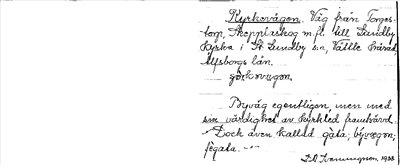 Kyrkovägen. Väg från Torges-
torp, Skopplaskog m fl. till Lundby
kyrka i St. Lundby s:n, Vättle härad,
Älfsborgs län.
Byväg egentligen, men med
sin värdighet av kyrkled framhävd.
Dock även kallad gata; byvägen;
fägata.
1933